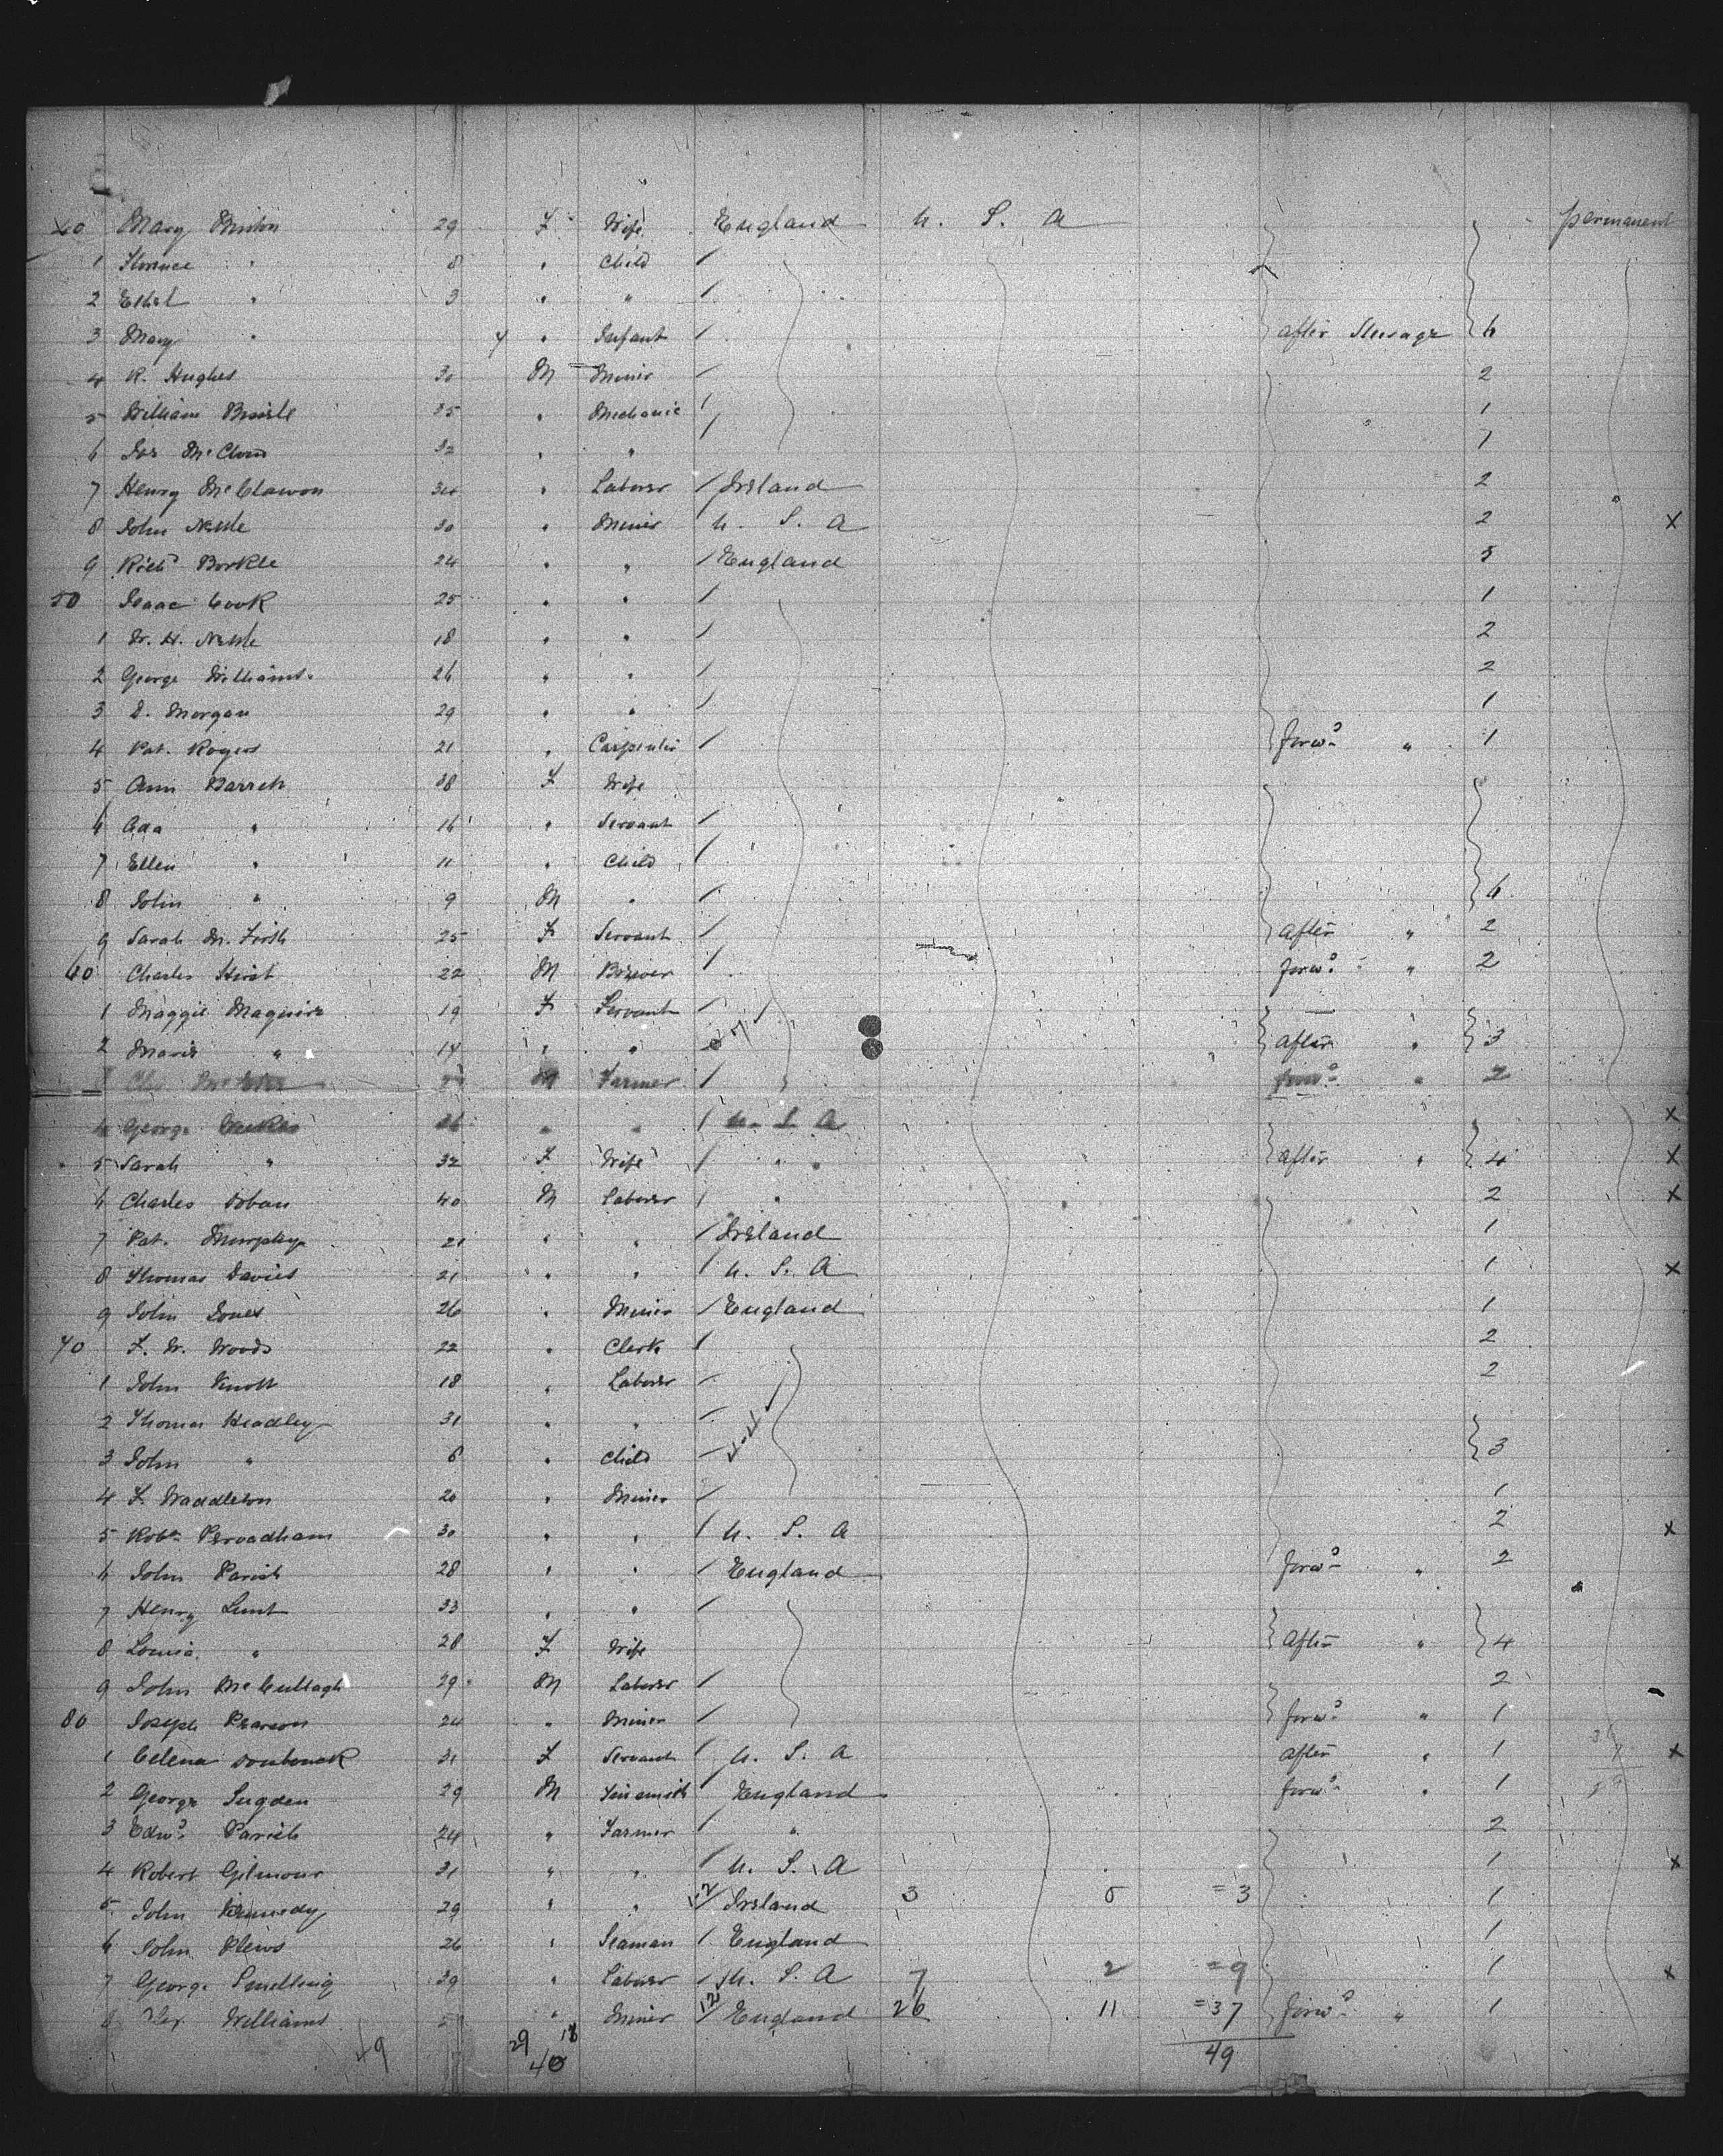 40 Mary 29 F Wife England U. S. A permanent
1 Florence " 8 " Child /
2 Ethel " 3 " " /
3 Mary " " Infant / after Steerage 6
4 R. Hughes 30 M Miner / 2
5 William 35 " Mechanic / 1
6 32 " " / 1
7 Henry " Laborer / Ireland 2
8 John Nettle 30 " Miner U. S. A 2 X
9 Richd Borkle 24 " " / England 5
50 Isaac Cook 25 " " / 1
1 W. H. Nettle 18 " " / 2
2 George Williams 26 " " / 2
3 D. Morgan 29 " " / 1
4 Pat. Rogers 21 " Carpenter / forwd " 1
5 Ann 38 F Wife
6 Ada " 16 " Servant /
7 Ellen " 11 " Child /
8 John " 9 M " / 6
9 Sarah M. Firth 25 F Servant / After " 2
60 Charles Hirst 22 M Brewer / forwd " 2
1 Maggie Maguire 19 F Servant /
2 " 14 " " After " 3
M Farmer / forwd " 2
4 George " " / U. S. A X
5 Sarah " 32 F Wife / " " after " 4 X
6 Charles 40 M Laborer / " 2 X
7 Pat. Murphy 21 " " / Ireland 1
8 Thomas Davies 21 " " / U. S. A 1 X
9 John Jones 26 " Miner / England 1
70 F. W. Woods 22 " Clerk / 2
1 John Knott 18 " Laborer / 2
2 Thomas Headley 31 " " /
3 John " 6 " Child / 3
4 F. Waddleton 20 " Miner / 1
5 Robt 30 " " / U. S. A 2 X
6 John Parish 28 " " / England forwd " 2
7 Henry Lunt 33 " " /
8 Louisa " 28 F Wife After " 4
9 John McCullagh 29 M Laborer / 2
80 Joseph Pearson 24 " Miner / forwd " 1
1 Celena 31 F Servant / U. S. A after " 1 X
2 George Sugden 29 M Tinsmith England forwd " 1
3 Edwd Parish 24 " Farmer / " 2
4 Robert Gilmour 21 " " / U. S. A 1 X
5 John Kennedy 29 " " / Ireland 3 0 = 3 1
6 John Plews 26 " Seaman / England 1
7 George 39 " Laborer / U. S. A 7 2 = 9 1 X
8 Williams " Miner / England 26 11 = 37 forwd " 1
49 29 18 40 49